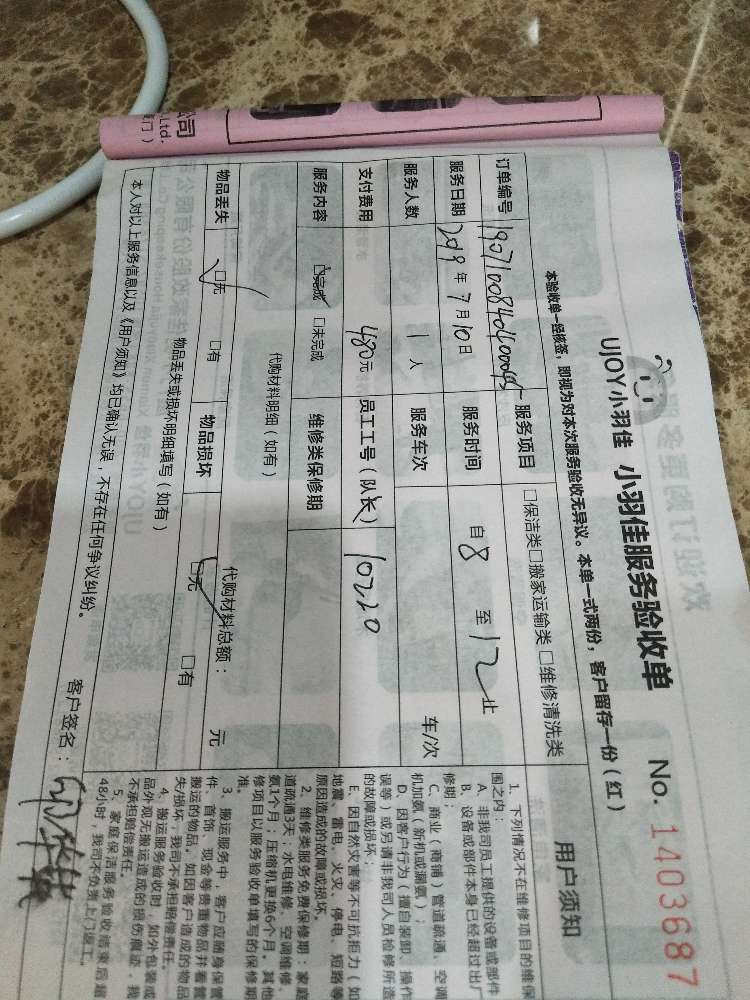 公司
Ltd.
UJOY小羽佳 小羽佳服务验收单 No. 1403687
本验收单一经核签，即视为对本次服务验收无异议。本单一式两份，客户留存一份（红）
订单编号 服务项目 □保洁类□搬家运输类□维修清洗类
服务日期 2019年7月10日 服务时间 自8至12止
服务人数 1人 服务车次 车/次
支付费用 480元 员工工号（队长） 10220
服务内容 □完成 □未完成 维修类保修期
代购材料明细（如有） 代购材料总额： 元
物品丢失 □无 □有 物品损坏 □无 □有
物品丢失或损坏明细填写（如有）
本人对以上服务信息以及《用户须知》均已确认无误，不存在任何争议纠纷。
客户签名：
用户须知
1、下列情况不在维修项目的维保
围之内：
A、非我司员工提供的设备或部件
B、设备或部件本身已经超过出厂
修期；
C、商业（商铺）管道疏通、空调
机加氨（新机或漏氨）；
D、因客户行为（擅自装卸、操作
误等）或另请非我司人员检修所造
的故障或损坏；
E、因自然灾害等不可抗拒力（如
地震、雷电、火灾、停电、短路等
原因造成的故障或损坏。
2、维修类服务免费保修期：家庭
道疏通3天；水电维修、空调维修、
氨1个月；压缩机更换6个月。其他
修项目以服务验收单填写的保修期
准。
3、搬运服务中，客户应随身保管
件、首饰、现金等贵重物品并看管
搬运的物品。如因客户造成的物品
失/损坏，我司不承担赔偿责任。
4、搬运服务验收时，如外包装或
品外观无搬运造成的损伤痕迹，我
不承担赔偿责任。
5、家庭保洁服务验收结束后超
48小时，我司不负责上门返工。